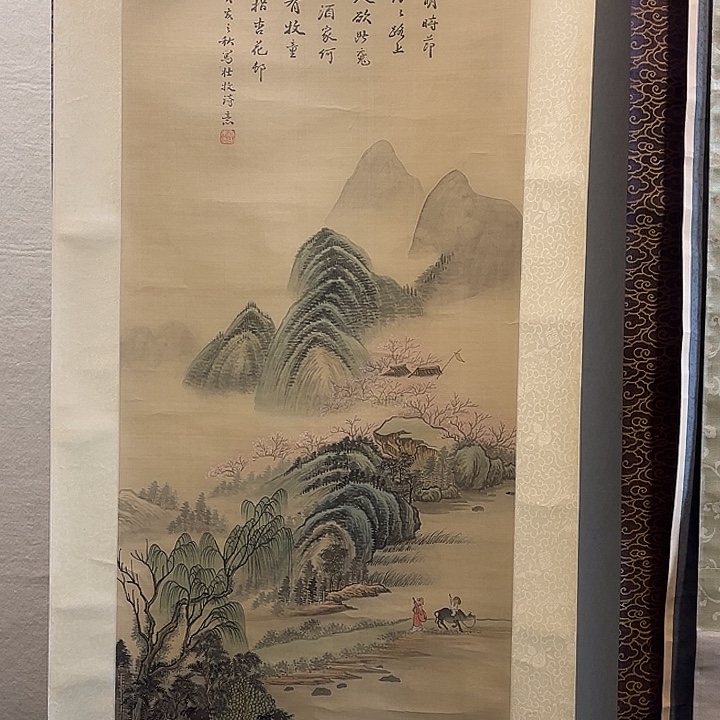 明時節
紛〻路上
人欲斷魂
酒家何
有牧童
指杏花邨
亥之秋寫杜牧詩意